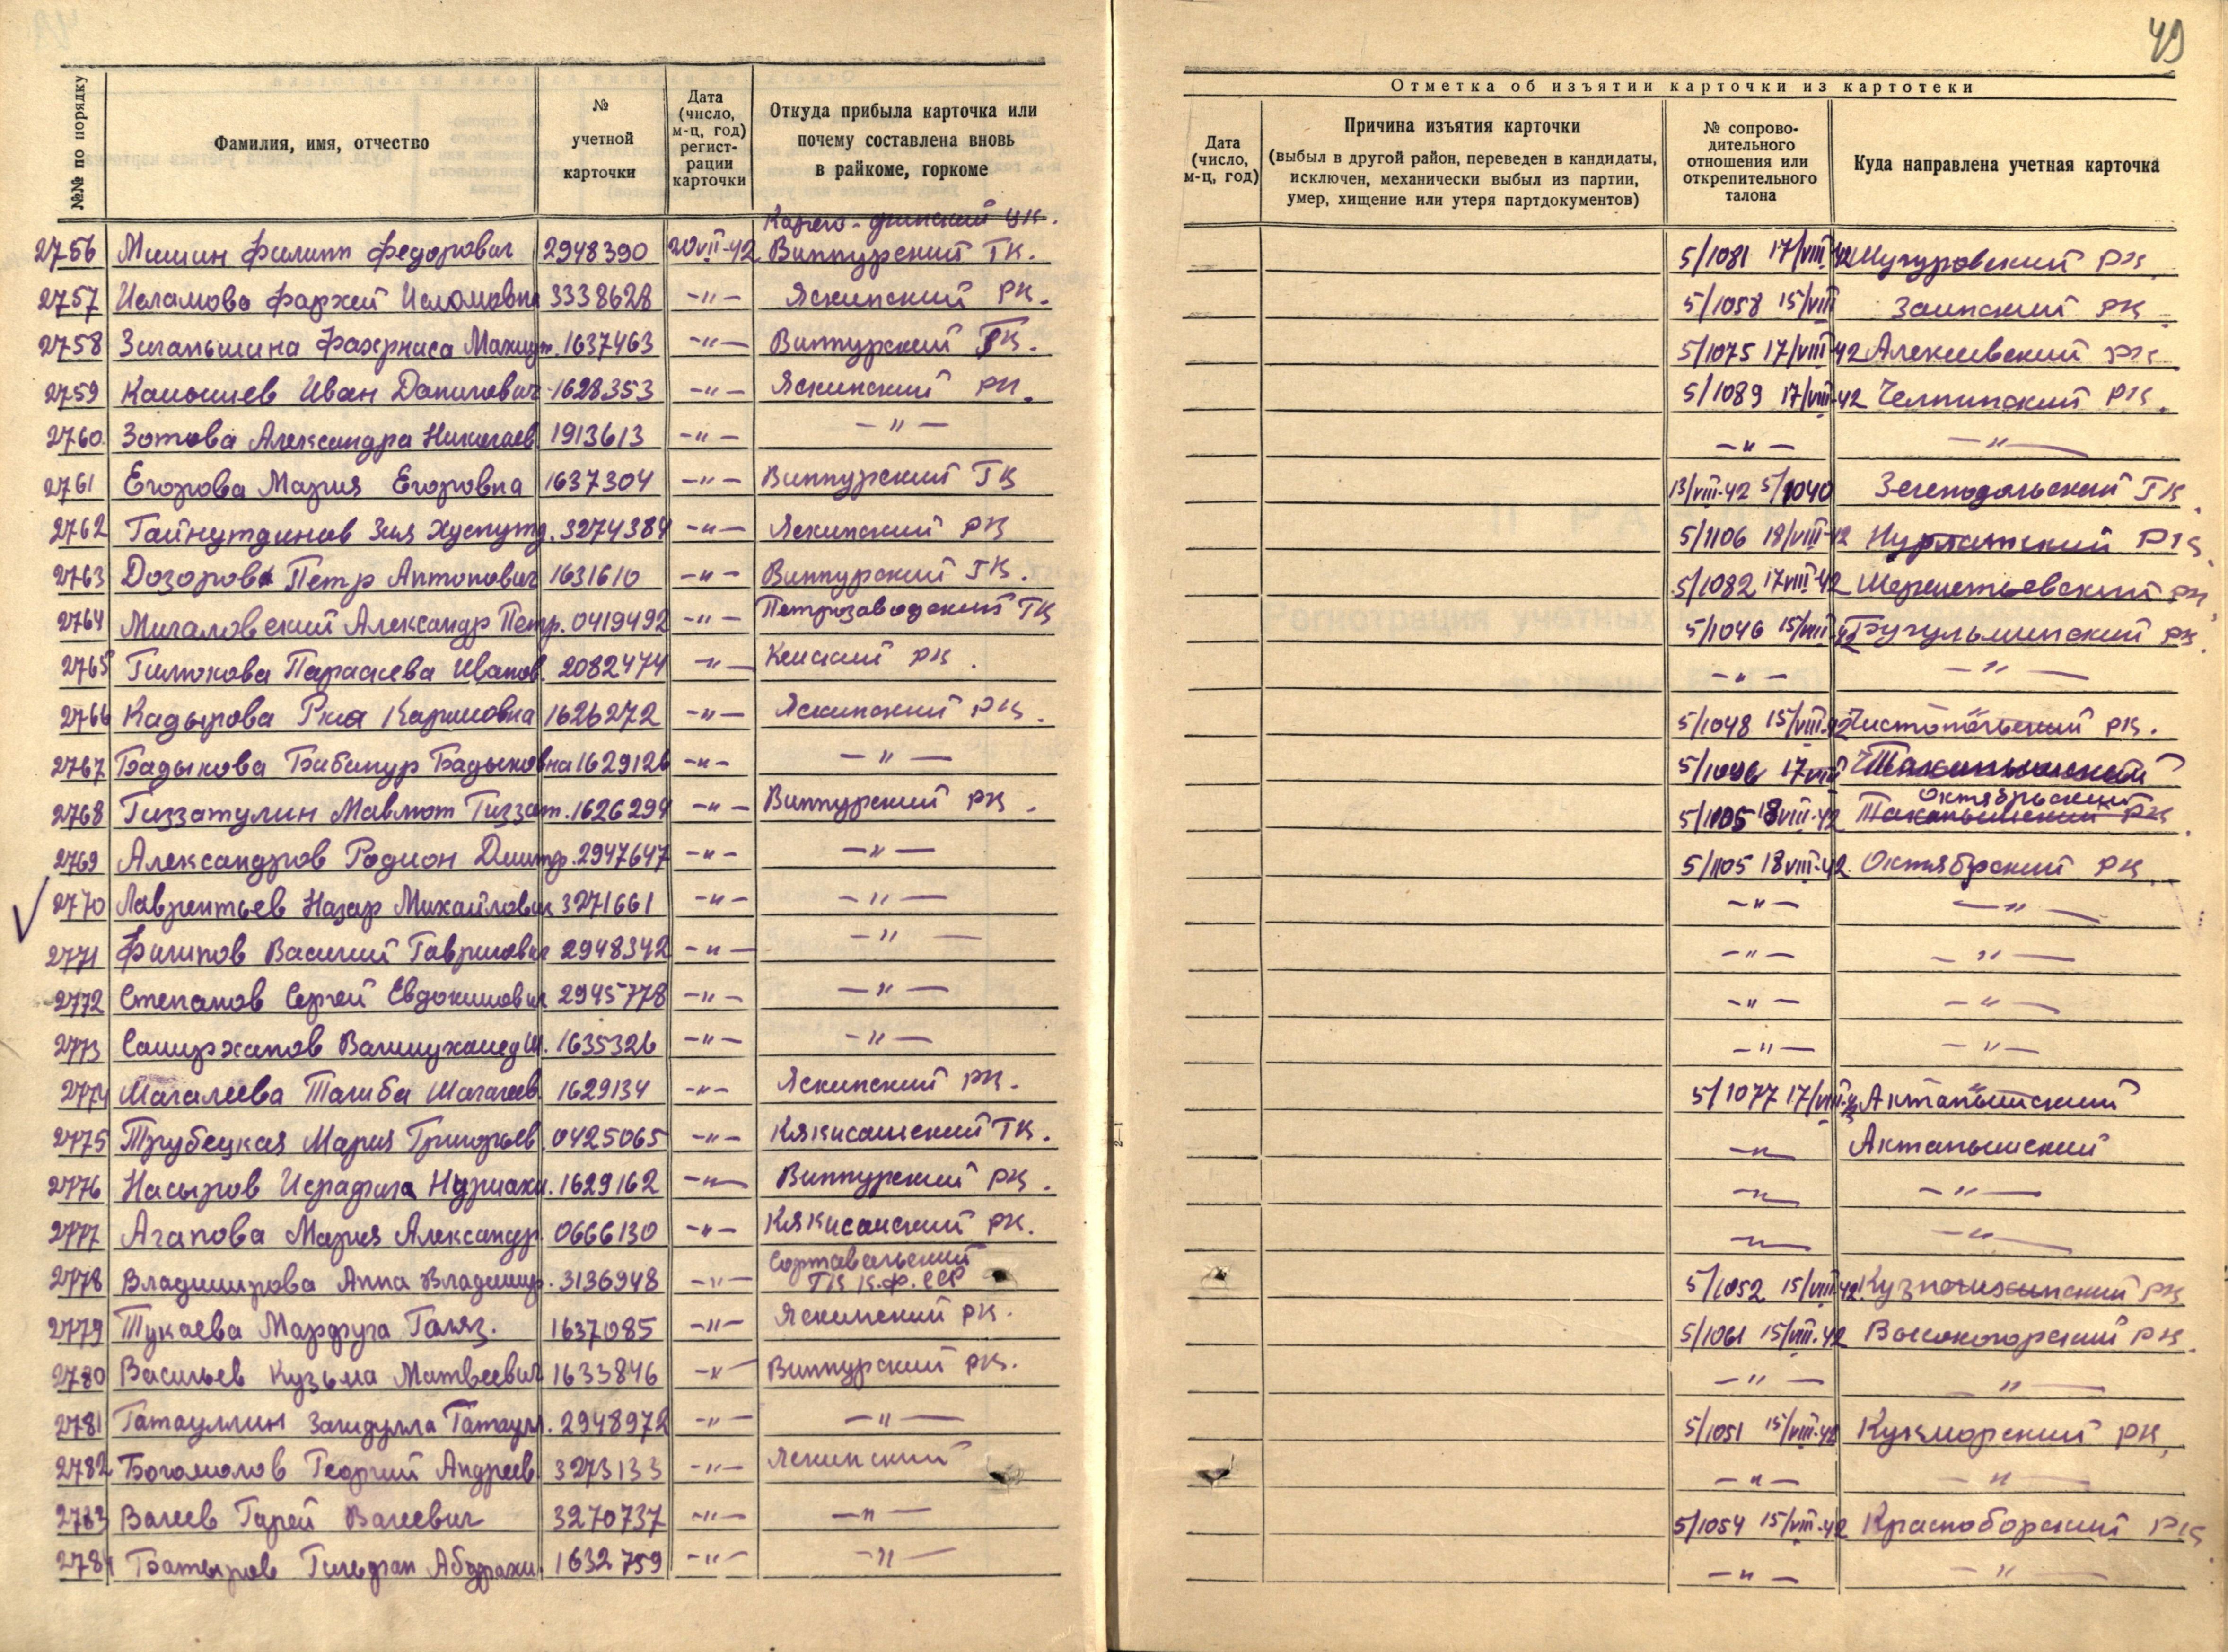 49
№№ по порядку
Фамилия, имя, отчество
№ учетной карточки
Дата (число, м-ц, год) регистрации карточки
Откуда прибыла карточка или почему составлена вновь в райкоме, горкоме
Отметка об изъятии карточки из картотеки
Дата (число, м-ц, год)
Причина изъятия карточки
(выбыл в другой район, переведен в кандидаты, исключен, механически выбыл из партии, умер, хищение или утеря партдокументов)
№ сопроводительного отношения или открепительного талона
Куда направлена учетная карточка
Карело-финский ЦК.
2756 Мишин Филипп Федорович 2948390 20 VII-42 Виппурский ГК. 5/1081 17/VIII-42 РК
2757 Исламова Исламовна 3338628 -"- Яскинский РК. 5/1058 15/VIII Заинский РК
2758 Зиганьшина 1637463 -"- Виппурский ГК. 5/1075 17/VIII-42 Алексеевский РК
2759 Иван Данилович 1628353 -"- Яскинский РК. 5/1089 17/VIII-42 Челнинский РК.
2760 Зотова Александра Николаев 1913613 -"- -"- -"- -"-
2761 Егорова Мария Егоровна 1637304 -"- Виппурский ГК 13/VIII-42 5/1040 Зеленодольский ГК
2762 Гайнутдинов Зия Хуснутд. 3274384 -"- Яскинский РК 5/1106 18/VIII-42 Нурлатский РК
2763 Дозоров Петр Антонович 1631610 -"- Виппурский ГК. 5/1082 17 VIII-42 Шереметьевский РК
2764 Александр Петр. 0419492 -"- Петрозаводский ГК 5/1046 15/VIII-42 Бугульминский РК.
2765 Параскева Иванов. 2082474 -"- Кемский РК. -"- -"-
2766 Кадырова Каримовна 1626272 -"- Яскинский РК. 5/1048 15/VIII-42 Чистопольский РК.
2767 Бадыкова Бибинур Бадыковна 1629126 -"- -"- 17 VIII
2768 Гиззатулин Мавлют Гиззат. 1626294 -"- Виппурский РК. 5/1105 18 VIII-42 Октябрьский РК.
2769 Александров Родион Дмитр. 2947647 -"- -"- 5/1105 18 VIII-42 Октябрский РК
2770 Лаврентьев Назар Михайлович 3271661 -"- -"- -"- -"-
2771 Филипов Василий Гаврилович 2948342 -"- -"- -"- -"-
2772 Степанов Сергей Евдокимович 2945778 -"- -"- -"- -"-
2773 1635326 -"- -"- -"- -"-
2774 Магалеева Магалеев. 1629134 -"- Яскинский РК. 5/1077 17/VIII-42 Актанышский
2775 Трубецкая Мария Григорьев. 0425065 -"- Кякисалмский ГК. -"- Актанышский
2776 Насыров 1629162 -"- Виппурский РК. -"- -"-
2777 Агапова Мария Александр. 0666130 -"- РК. -"- -"-
2778 Владимирова Анна Владимир. 3136948 -"- Сортавальский ГК К.Ф.ССР 5/1052 15/VIII-42 Кузнечихинский РК
2779 Тукаева Марфуга 1637085 -"- Яскинский РК. 5/1061 15/VIII-42 Высокогорский РК.
2780 Васильев Кузьма Матвеевич 1633846 -"- Виппурский РК. -"- -"-
2781 Гатауллин Загидулла Гатаулл. 2948972 -"- -"- 5/1051 15/VIII-42 Кукморский РК.
2782 Богомолов Георгий Андреев 3273133 -"- Яскинский -"- -"-
2783 Валеев Гарей Валеевич 3270737 -"- -"- 5/1054 15/VIII-42 Красноборский РК
2784 Батыров Гильфан Абдрахм. 1632759 -"- -"- -"- -"-